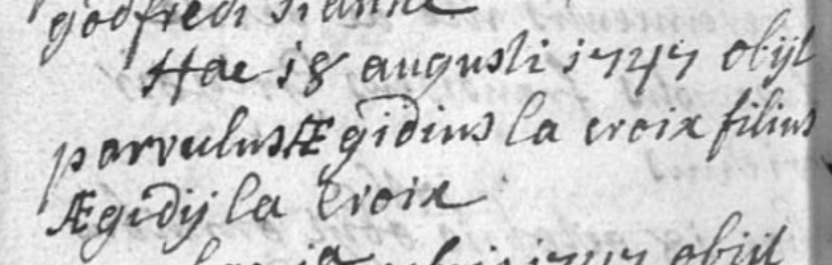 godfredi
Hae 18 augusti 1747 obijt
parvulus Ægidius la croix filius
Ægidij la Croix
1747 obijt